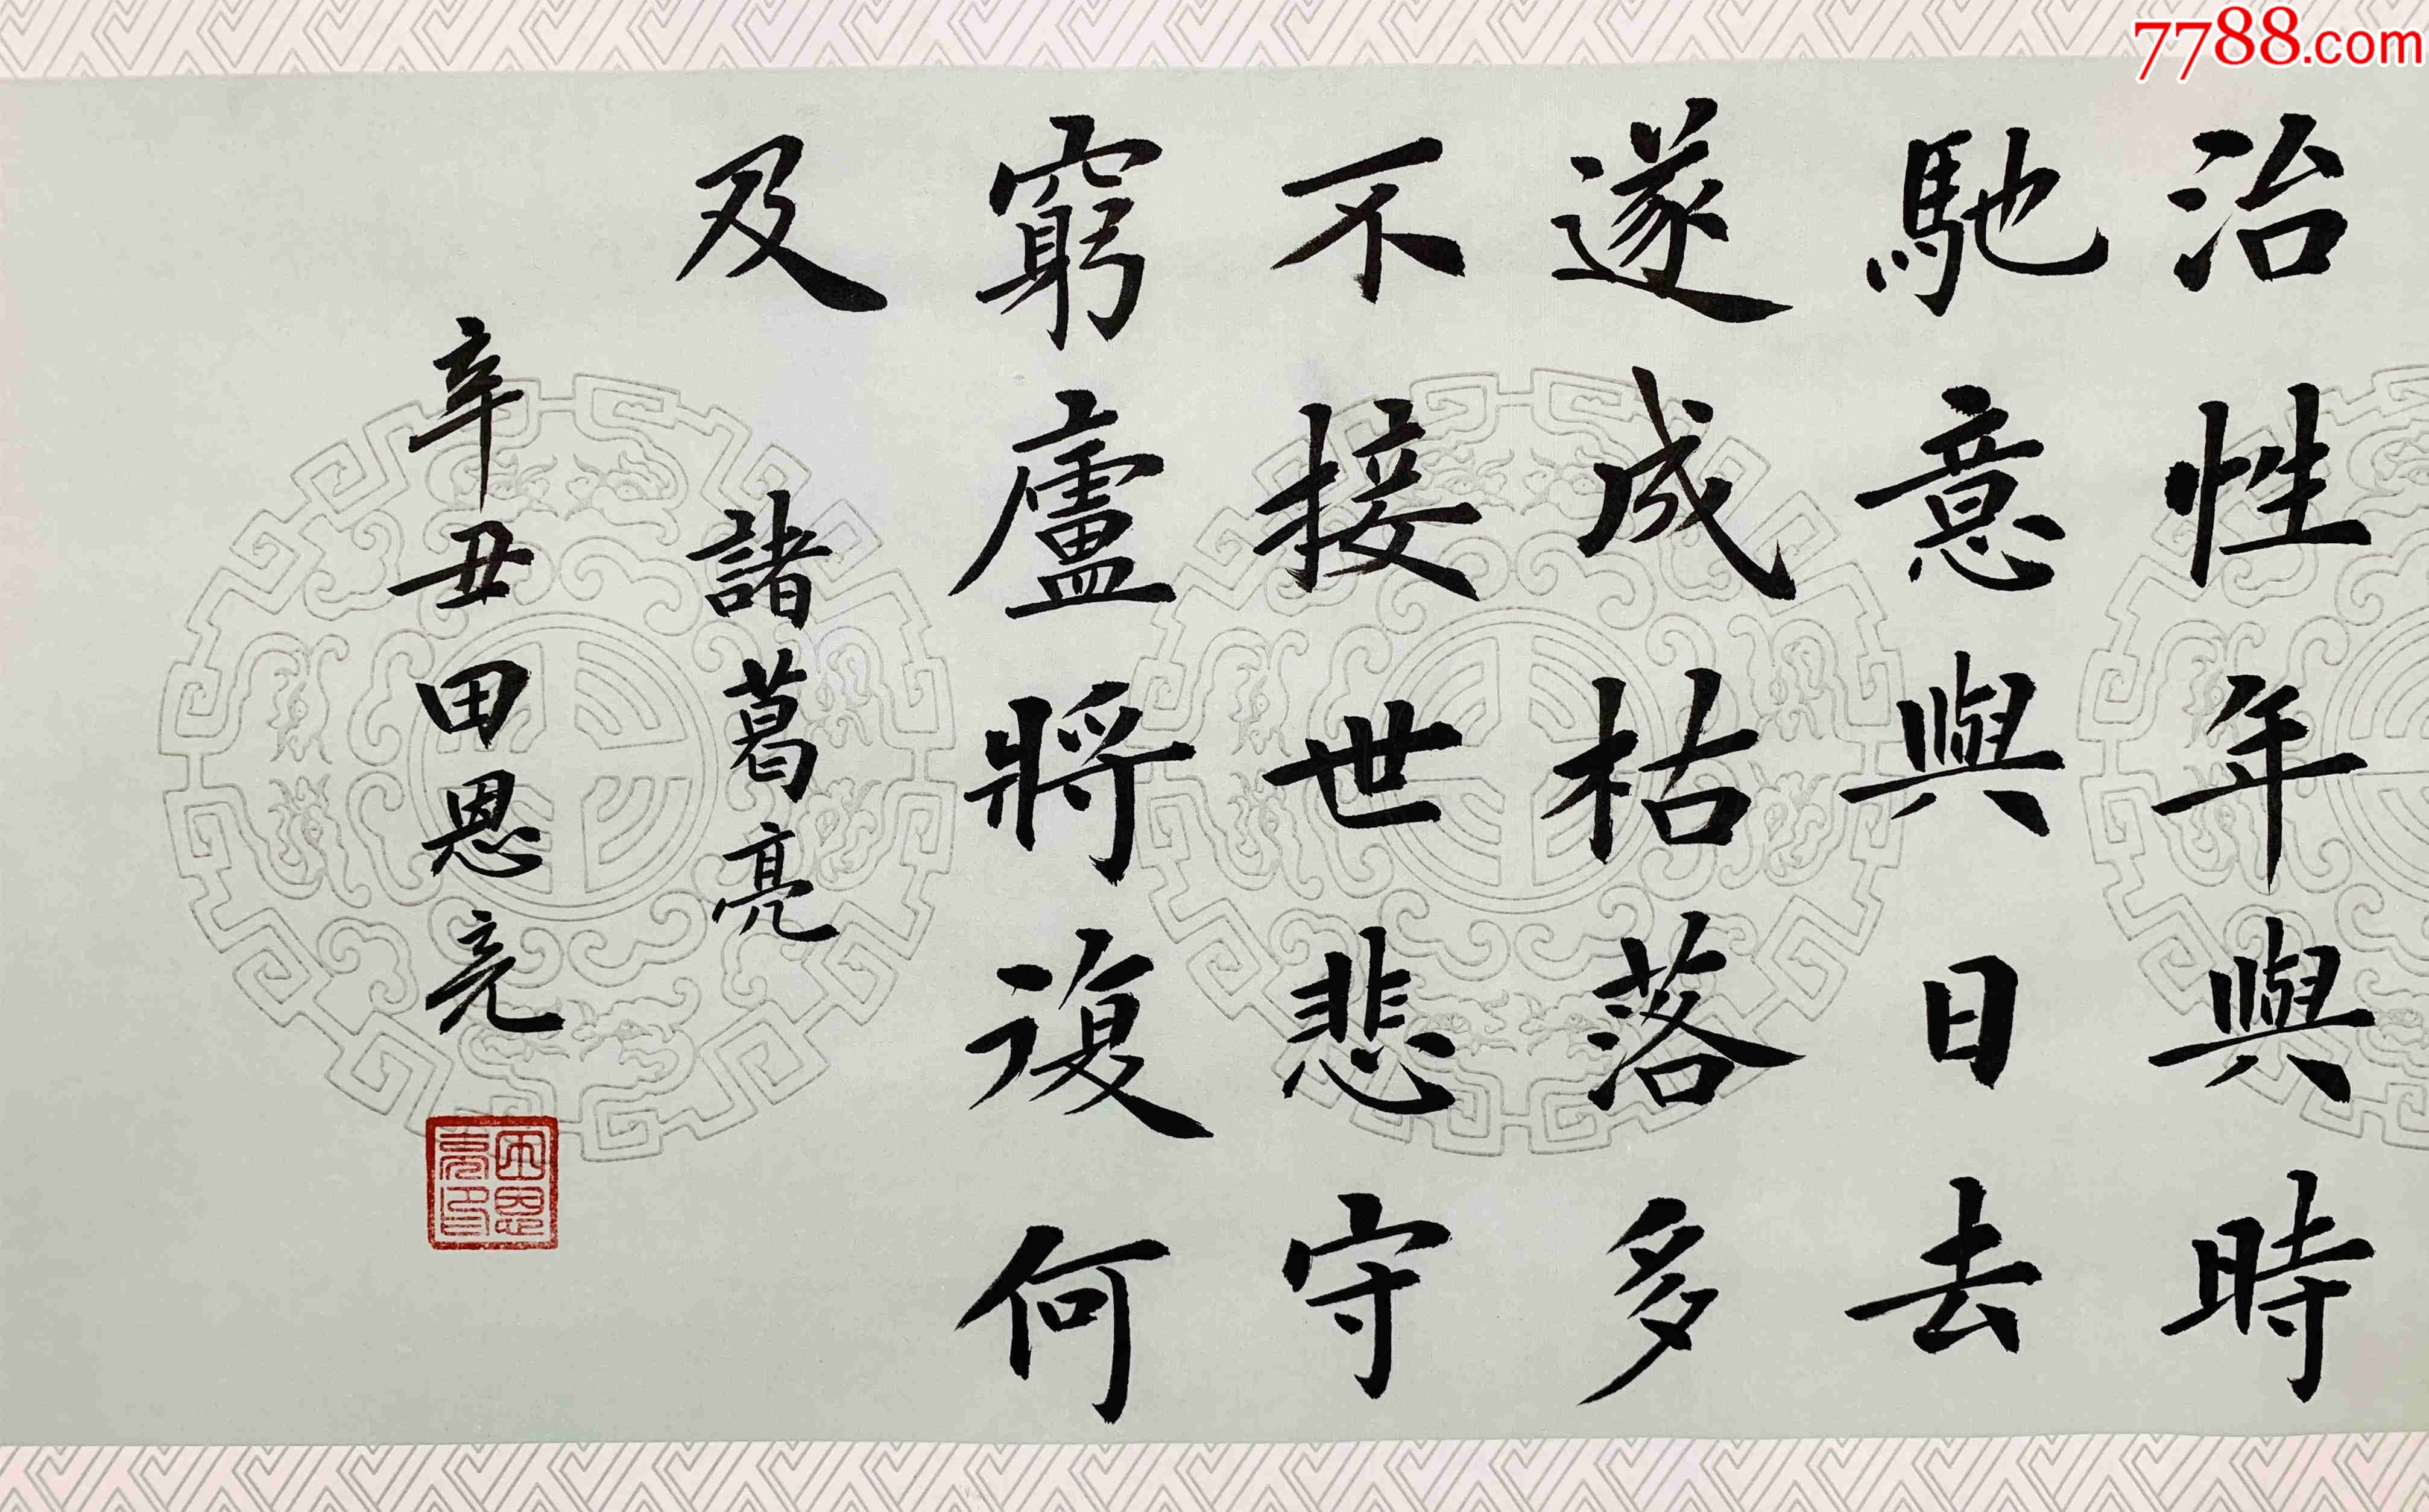 治性年與時
馳意與日去
遂成枯落多
不接世悲守
窮廬將復何
及
諸葛亮
辛丑田恩亮
田恩亮印
7788.com